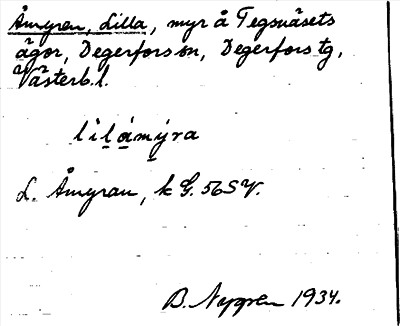 Åmyran, Lilla, myr å Tegsnäsets
ägor, Degerfors sn, Degerfors tg,
Västerb. l.
lilåmýra
L. Åmyran, k G. 56 SV.
B. Nygren 1934.